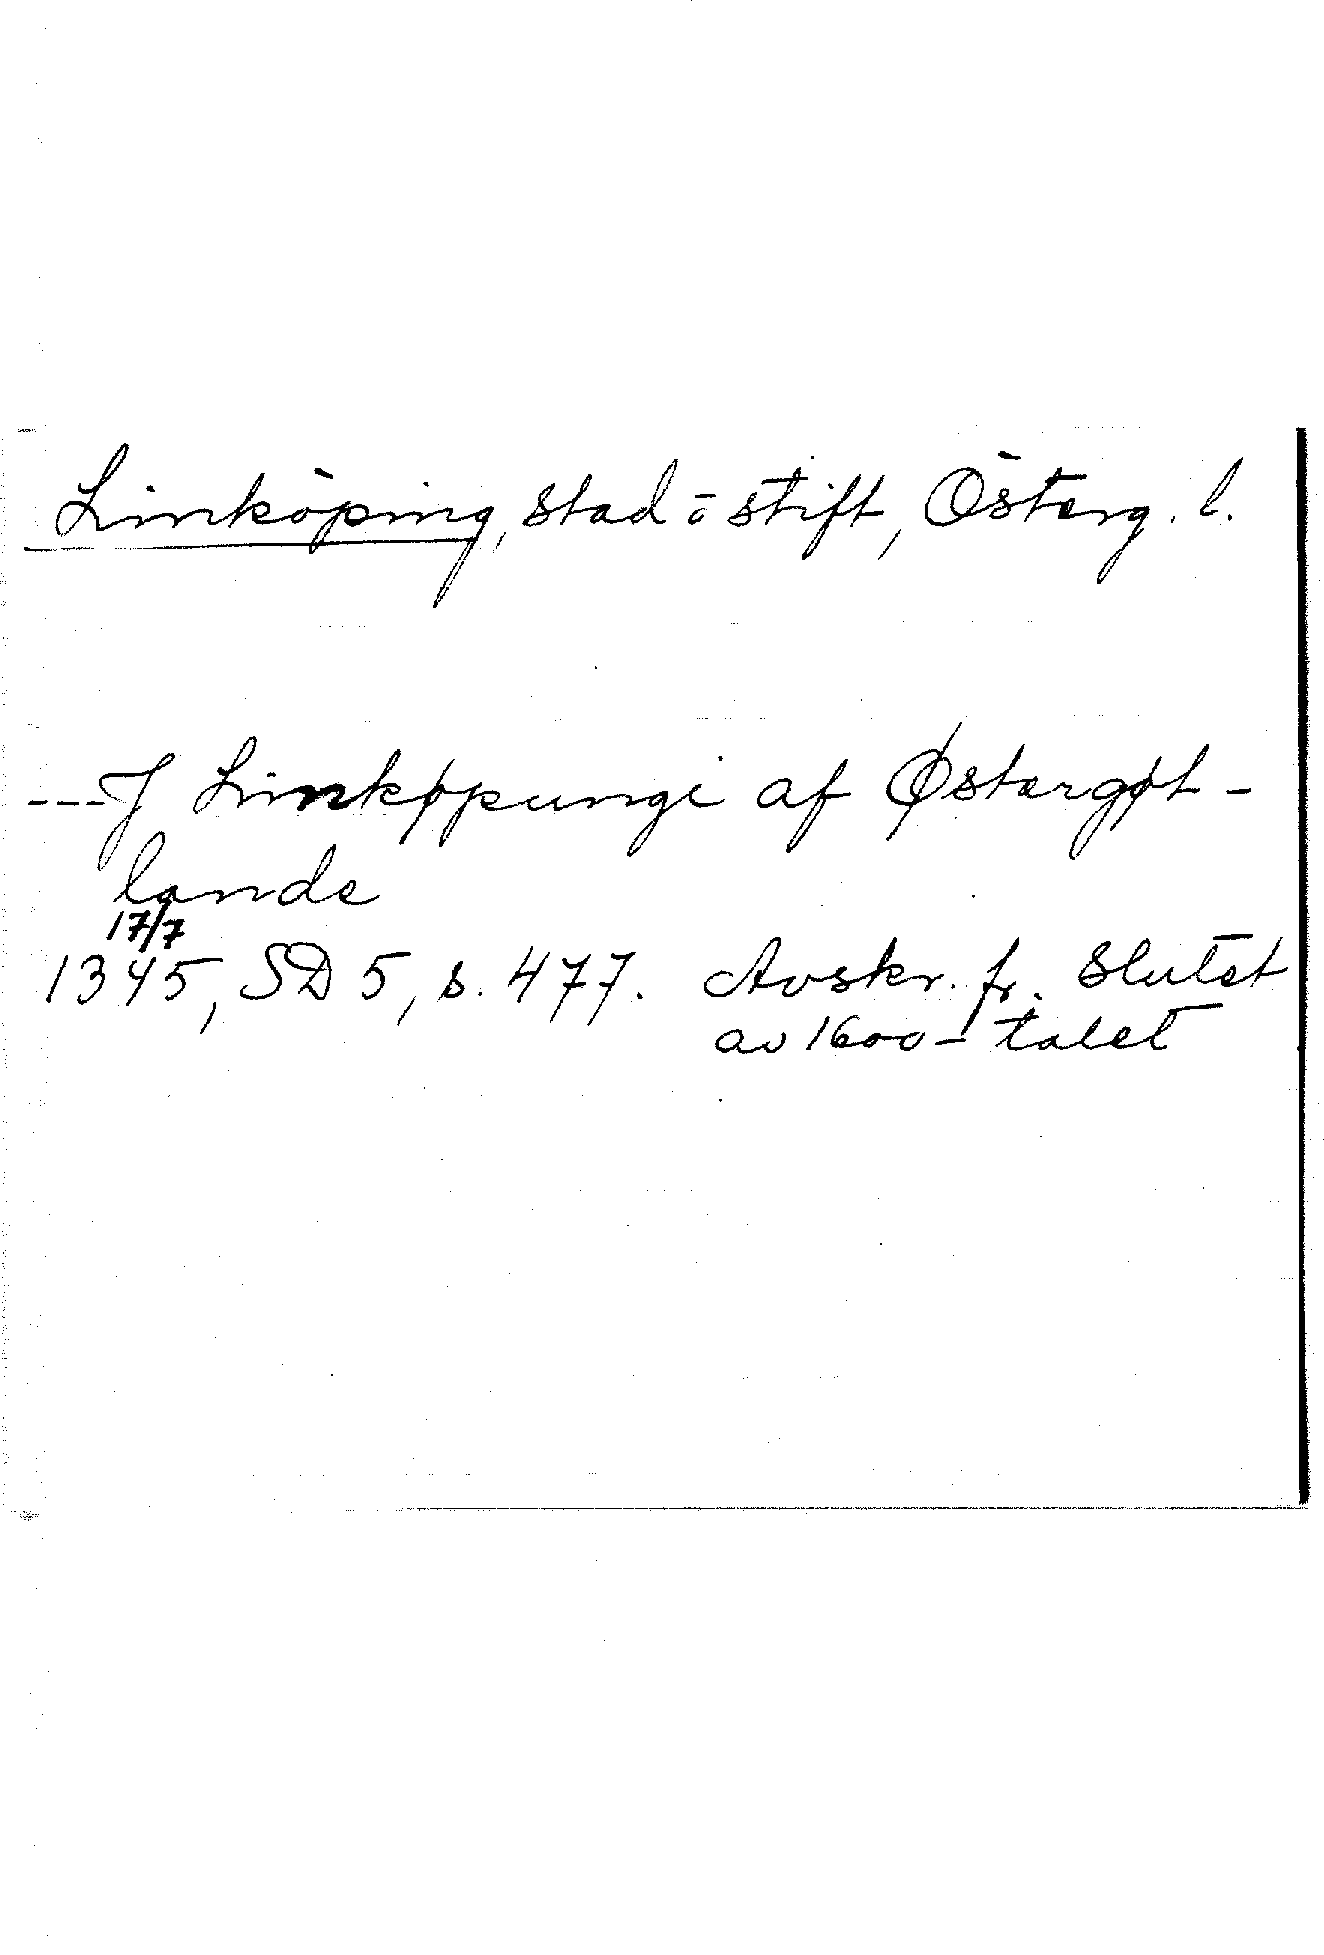 Linköping, stad o stift, Österg. l.
---J Linkøpungi af Østergøt-
lande
17/7
1345, SD 5, s. 477. Avskr. fr. slutet
av 1600-talet